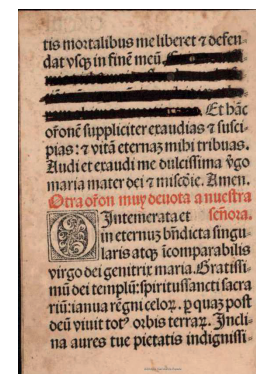 tis mortalibus me liberet ⁊ defen⸗
dat vsqꝫ in finē meū
Et hāc
ōrōnē suppliciter exaudias ⁊ susci⸗
pias: ⁊ vitā eternaꝫ mihi tribuas.
Audi et exaudi me dulcissima v̄go
maria mater dei ⁊ mīscd̄ie. Amen.
Otra oron̄ muy deuota a nuestra
señora.
O Intemerata et
in eternuꝫ bn̄dicta singu
laris atqꝫ īcomparabilis
virgo dei genitrix maria. Gratissi⸗
mū dei templū: spirituss̄ancti sacra
riū: ianua rēgni celoꝝ. ꝑ quaꝫ post
deū viuit totꝰ orbis terraꝝ. Incli⸗
na aures tue pietatis indignissi⸗